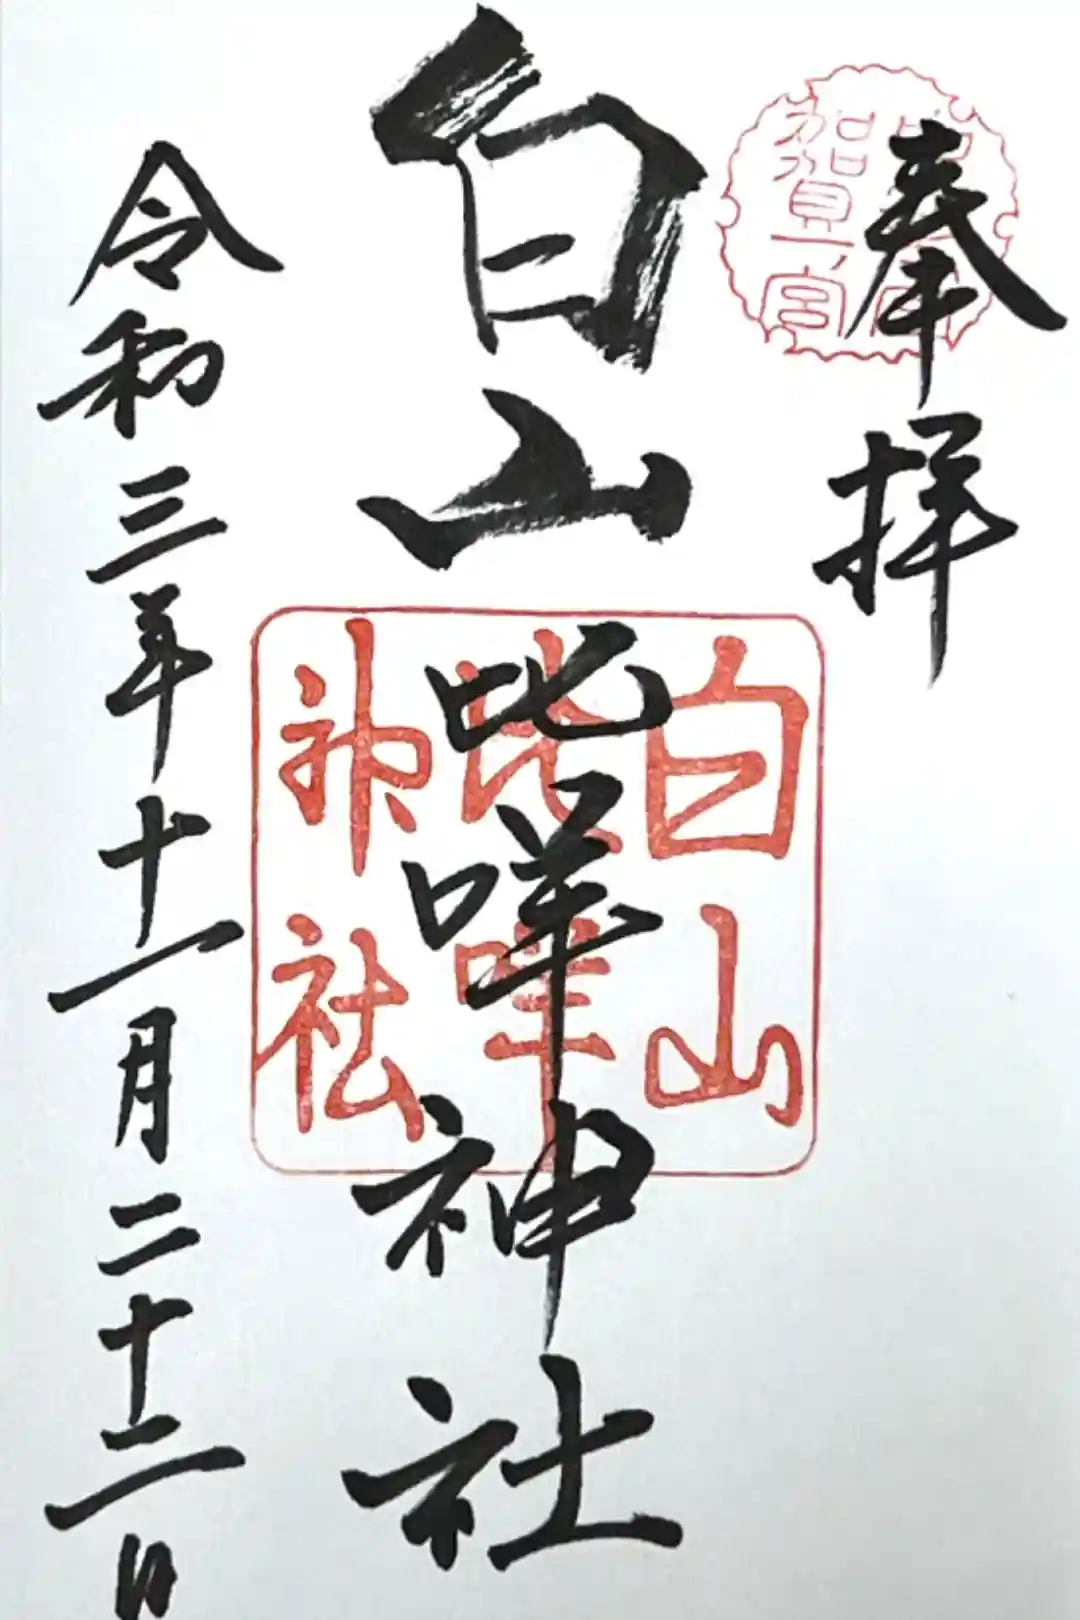 奉拝
白山比咩神社
令和三年十一月二十二日
白山
比咩
神社
加賀一宮